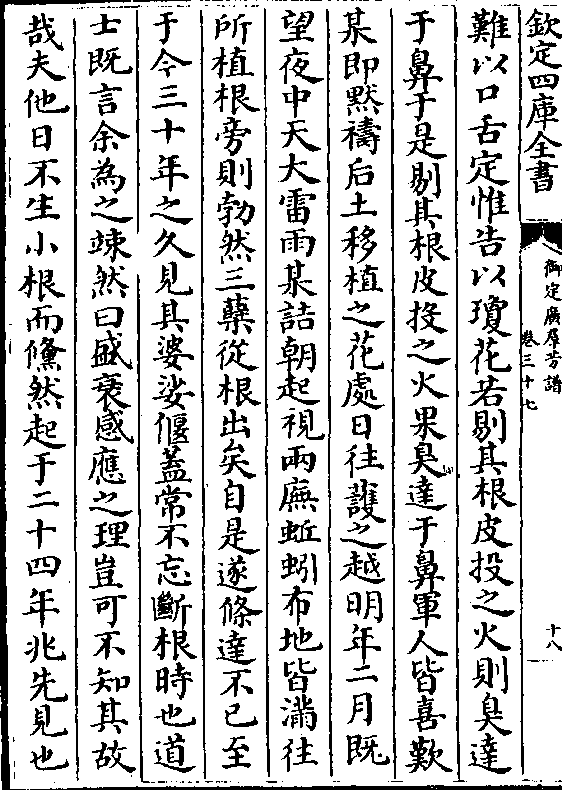 欽定四庫全書
御定廣羣芳譜
卷三十七
十八
難以口舌定惟告以瓊花若剔其根皮投之火則臭達
于鼻于是剔其根皮投之火果臭達于鼻軍人皆喜歎
某即黙禱后土移植之花處日往護之越明年二月既
望夜中天大雷雨某詰朝起視兩廡蚯蚓布地皆滿往
所植根旁則勃然三蘖從根出矣自是遂條達不已至
于今三十年之久見其婆娑偃蓋常不忘斷根時也道
士既言余為之竦然曰盛衰感應之理豈可不知其故
哉夫他日不生小根而儵然起于二十四年兆先見也